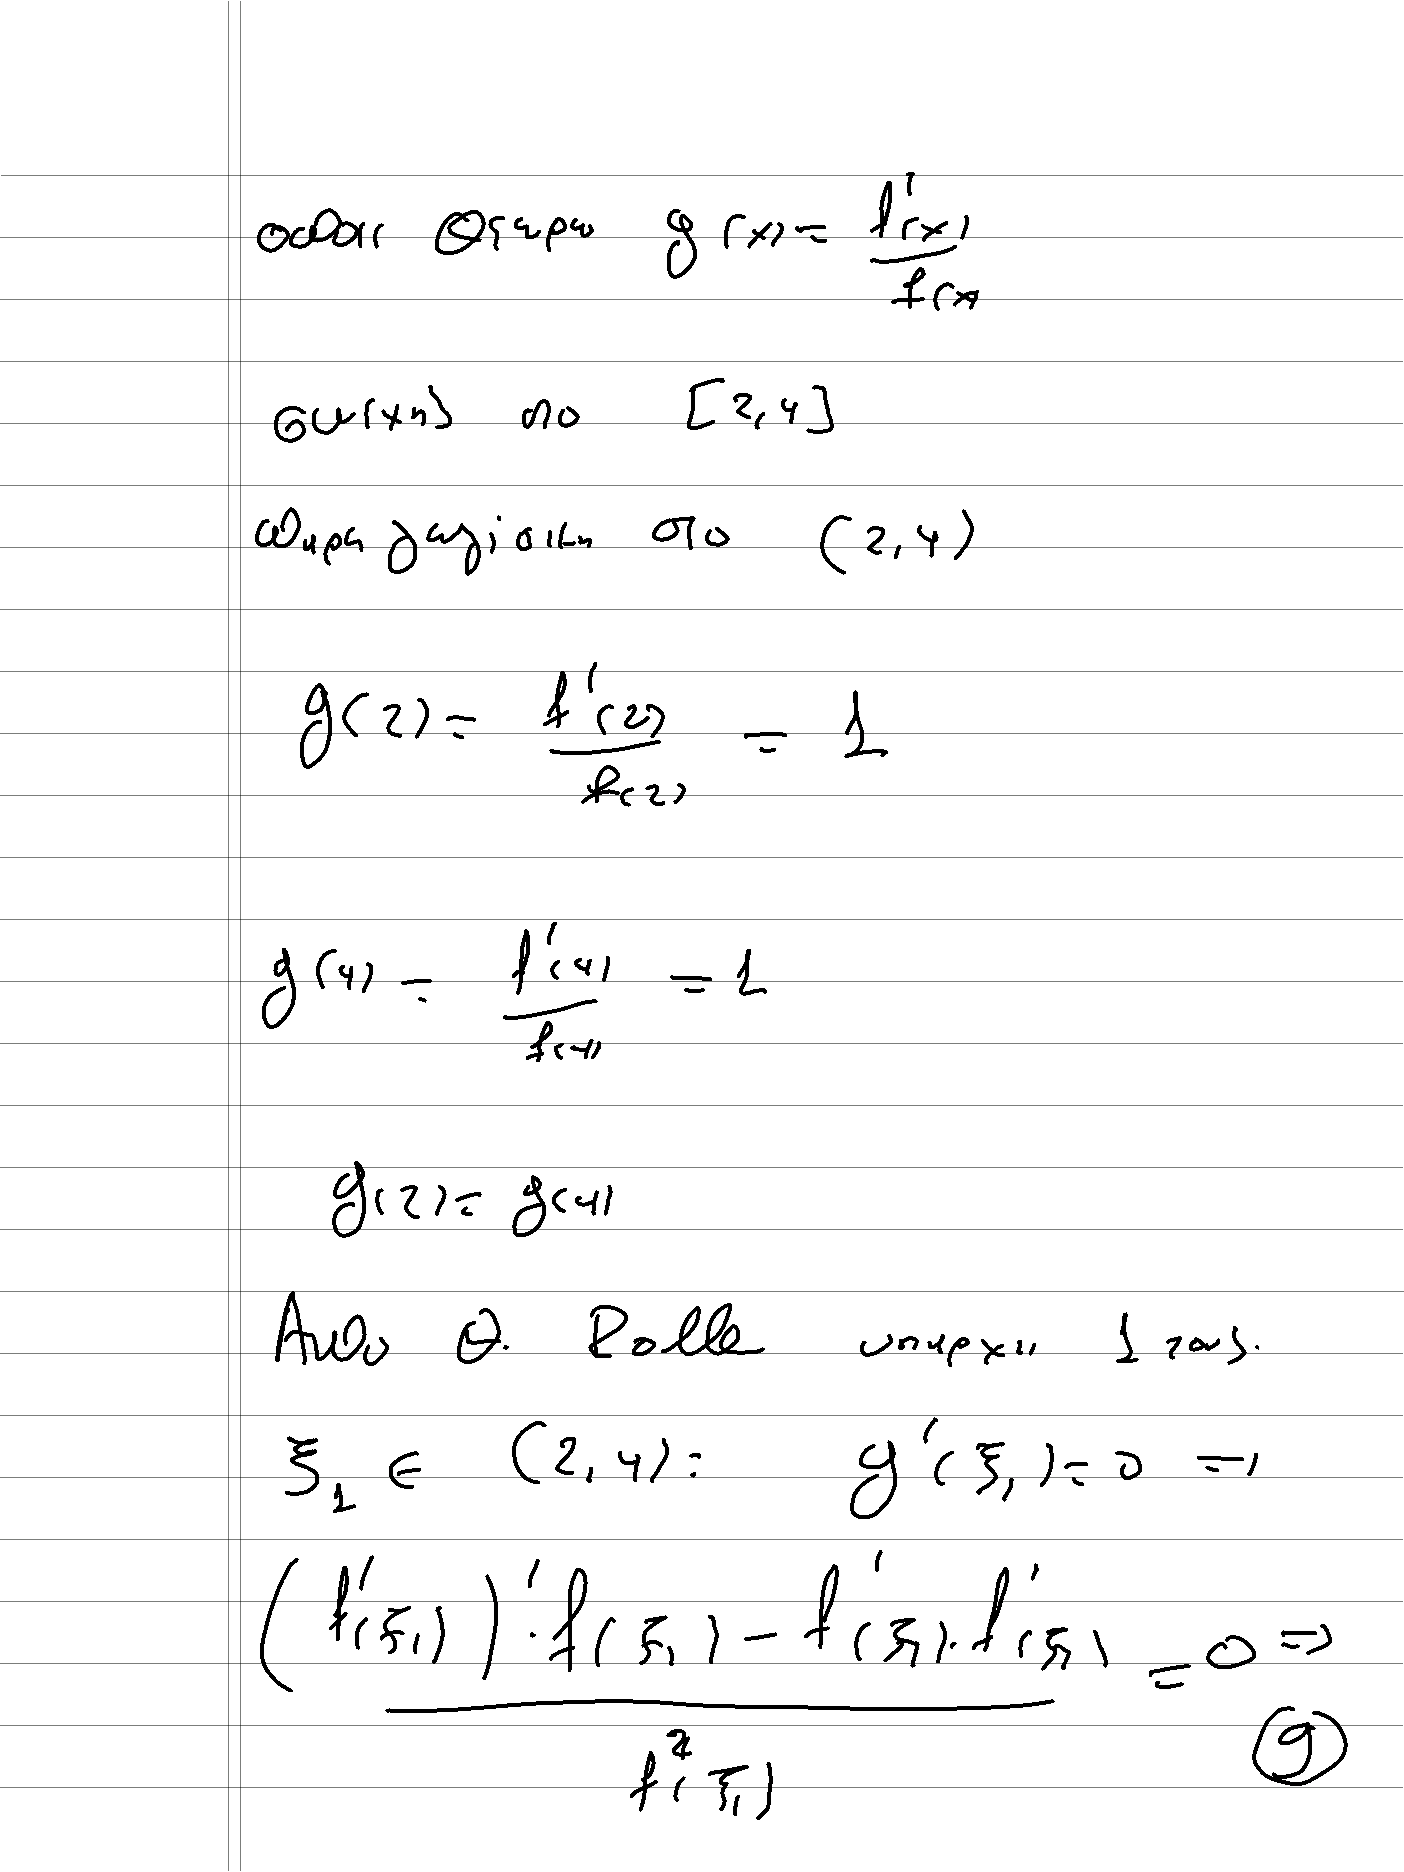 οπότε θεωρω g(x) = f'(x) / f(x)
συνεχής στο [2,4]
παραγωγίσιμη στο (2,4)
g(2) = f'(2) / f(2) = 1
g(4) = f'(4) / f(4) = 1
g(2) = g(4)
Από Θ. Rolle υπαρχει 1 τουλ.
ξ₁ ∈ (2,4): g'(ξ₁) = 0 =>
(f'(ξ₁))'·f(ξ₁) - f'(ξ₁)·f'(ξ₁) / f²(ξ₁) = 0 =>
9